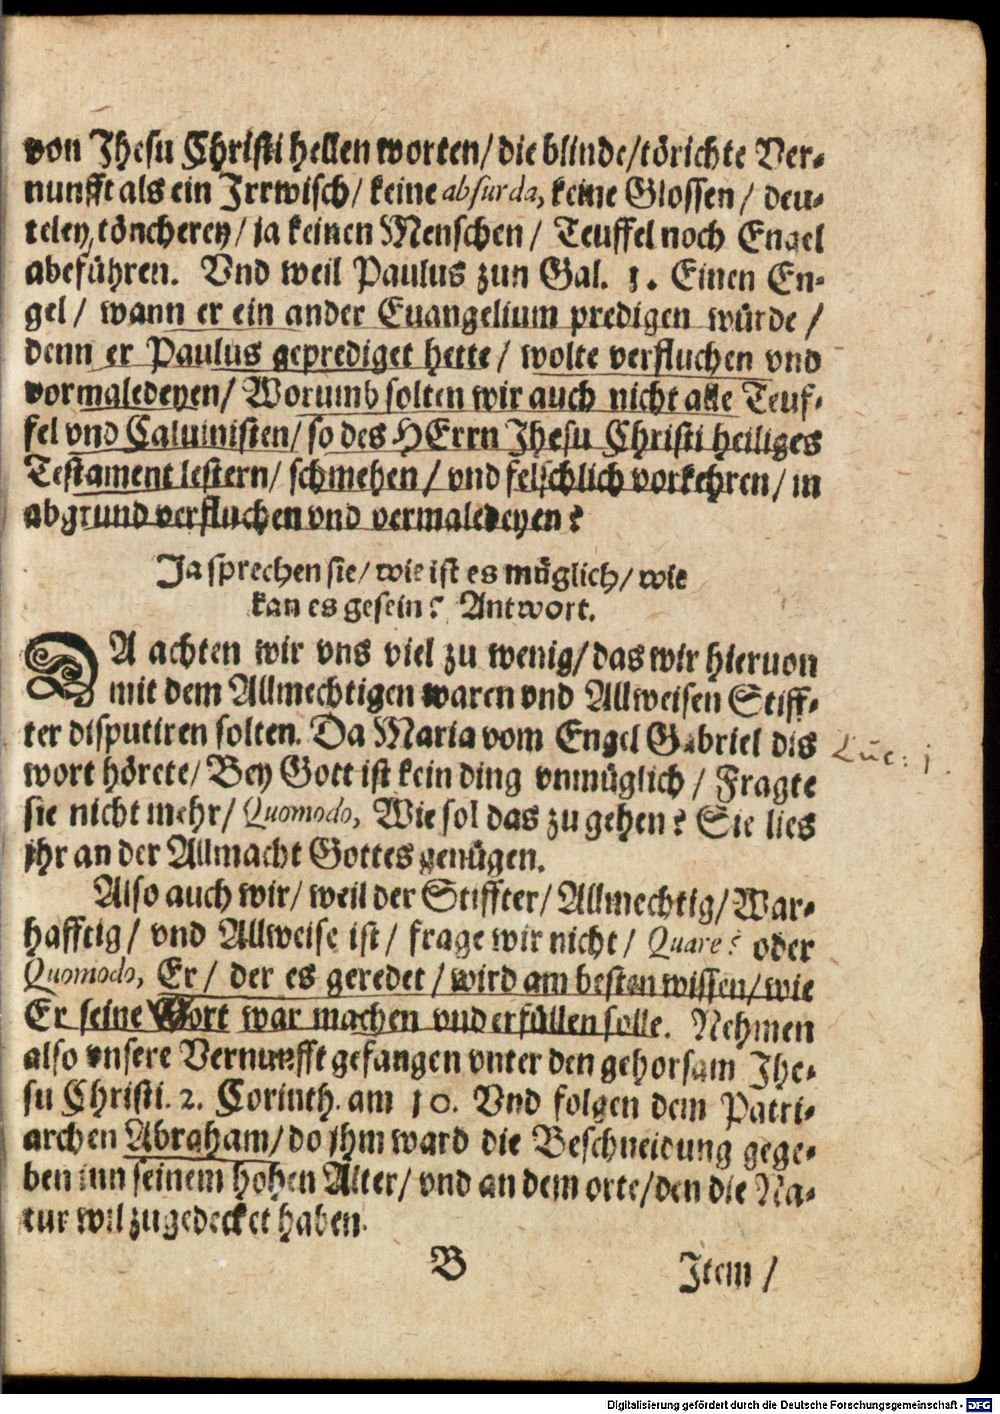 von Jhesu Christi hellen worten/ die blinde/ törichte Ver-
nunfft als ein Jrrwisch/ keine absurda, keine Glossen/ deu-
teley, töncherey/ ja keinen Menschen/ Teuffel noch Engel
abeführen. Vnd weil Paulus zun Gal. 1. Einen En-
gel/ wann er ein ander Euangelium predigen würde/
denn er Paulus geprediget hette/ wolte verfluchen vnd
vormaledeyen/ Worumb solten wir auch nicht alle Teuf-
fel vnd Caluinisten/ so des HErrn Jhesu Christi heiliges
Testament lestern/ schmehen/ vnd felschlich vorkehren/ in
abgrund verfluchen vnd vermaledeyen?
Ja sprechen sie/ wie ist es müglich/ wie
kan es gesein? Antwort.
DA achten wir vns viel zu wenig/ das wir hieruon
mit dem Allmechtigen waren vnd Allweisen Stiff-
ter disputiren solten. Da Maria vom Engel Gabriel dis
wort hörete/ Bey Gott ist kein ding vnmüglich/ Fragte
sie nicht mehr/ Quomodo, Wie sol das zugehen? Sie lies
jhr an der Allmacht Gottes genügen.
Also auch wir/ weil der Stiffter/ Allmechtig/ War-
hafftig/ vnd Allweise ist/ frage wir nicht/ Quare? oder
Quomodo, Er/ der es geredet/ wird am besten wissen/ wie
Er seine Wort war machen vnd erfüllen solle. Nehmen
also vnsere Vernunfft gefangen vnter den gehorsam Jhe-
su Christi. 2. Corinth. am 10. Vnd folgen dem Patri-
archen Abraham/ do jhm ward die Beschneidung gege-
ben inn seinem hohen Alter/ vnd an dem orte/ den die Na-
tur wil zugedecket haben.
B
Jtem/
Luc: 1.
Digitalisierung gefördert durch die Deutsche Forschungsgemeinschaft - DFG